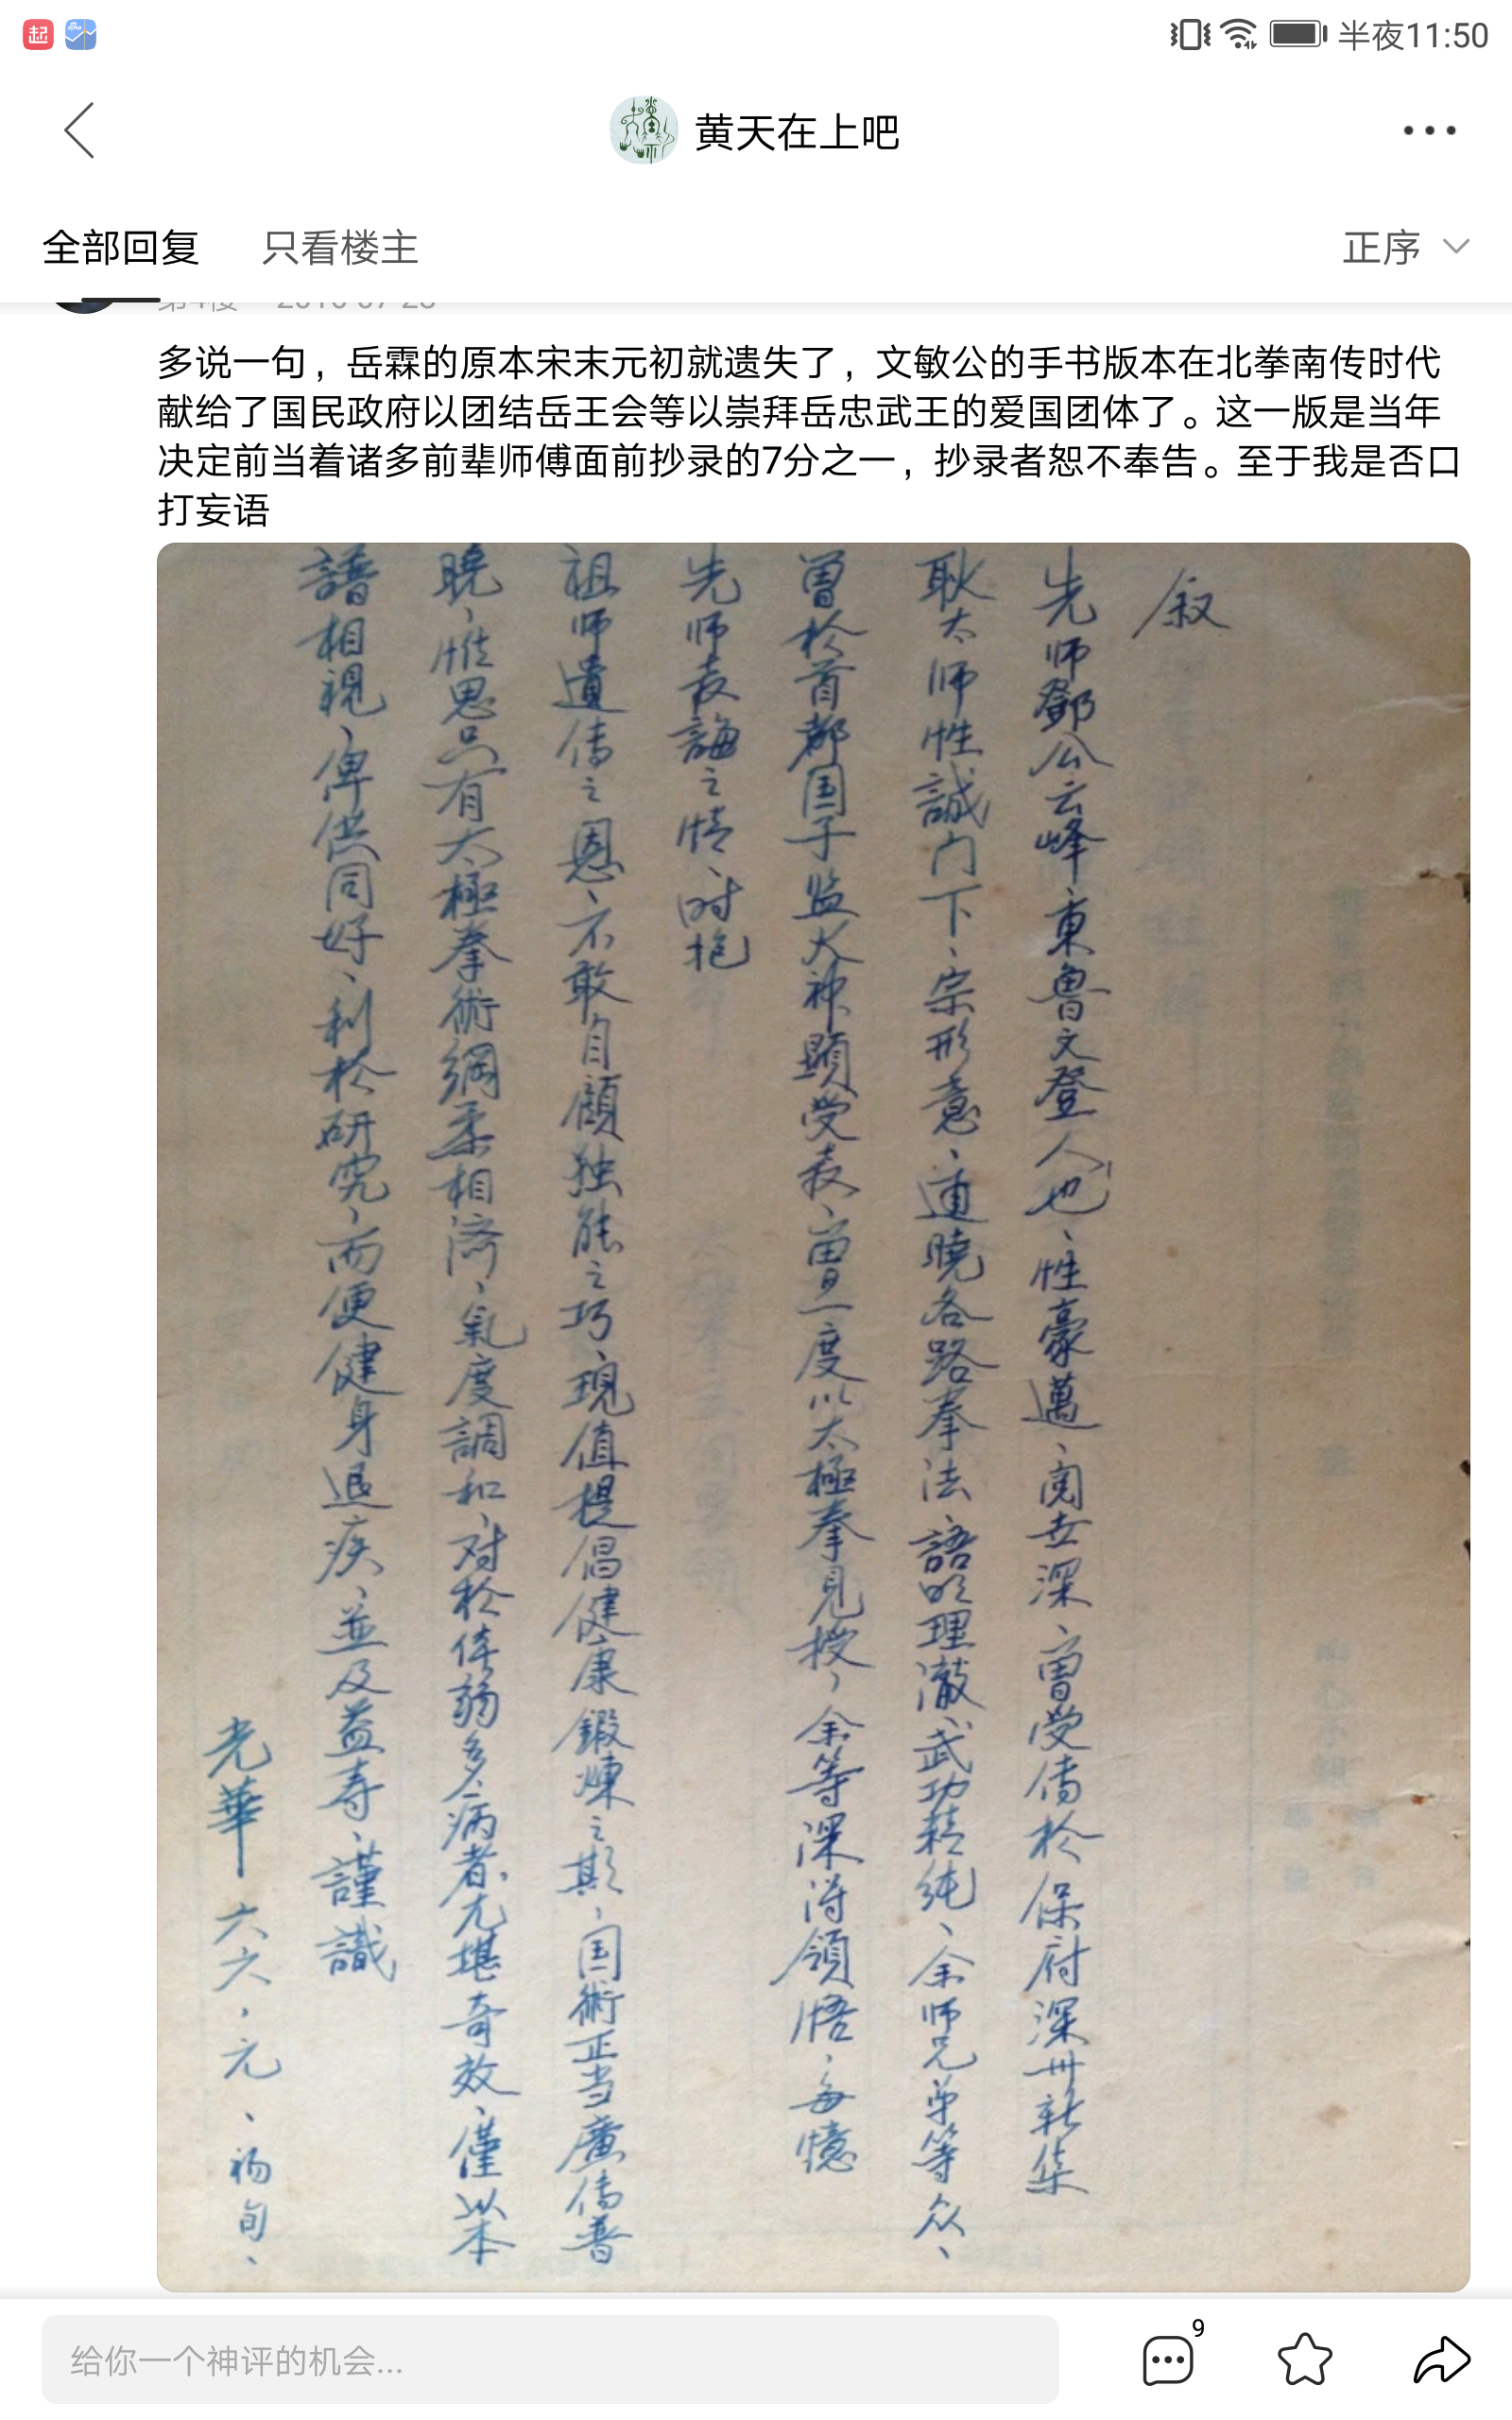 起
半夜11:50
黄天在上吧
全部回复 只看楼主 正序
多说一句，岳霖的原本宋末元初就遗失了，文敏公的手书版本在北拳南传时代
献给了国民政府以团结岳王会等以崇拜岳忠武王的爱国团体了。这一版是当年
决定前当着诸多前辈师傅面前抄录的7分之一，抄录者恕不奉告。至于我是否口
打妄语
叙
先师鄧公云峰、東魯文登人也、性豪邁、阅世深、曾受傳於保府深州新集
耿太师性誠门下、宗形意、通曉各路拳法、語明理澈、武功精纯、余师兄弟等众、
曾於首都国子监火神顕受教、曾一度以太極拳見授、余等深得領悟、每憶
先师教誨之情、时抱
祖师遺传之恩、不敢自顧独能之巧、現值提倡健康鍛煉之期、国術正当廣傳普
曉、惟思只有太極拳術綱柔相济、氣度調和、对於体弱多病者、尤堪奇效、僅以本
譜相視、俾供同好、利於研究、而便健身退疾、並及益寿、謹識
光華 六六、元、初旬、
给你一个神评的机会...
9